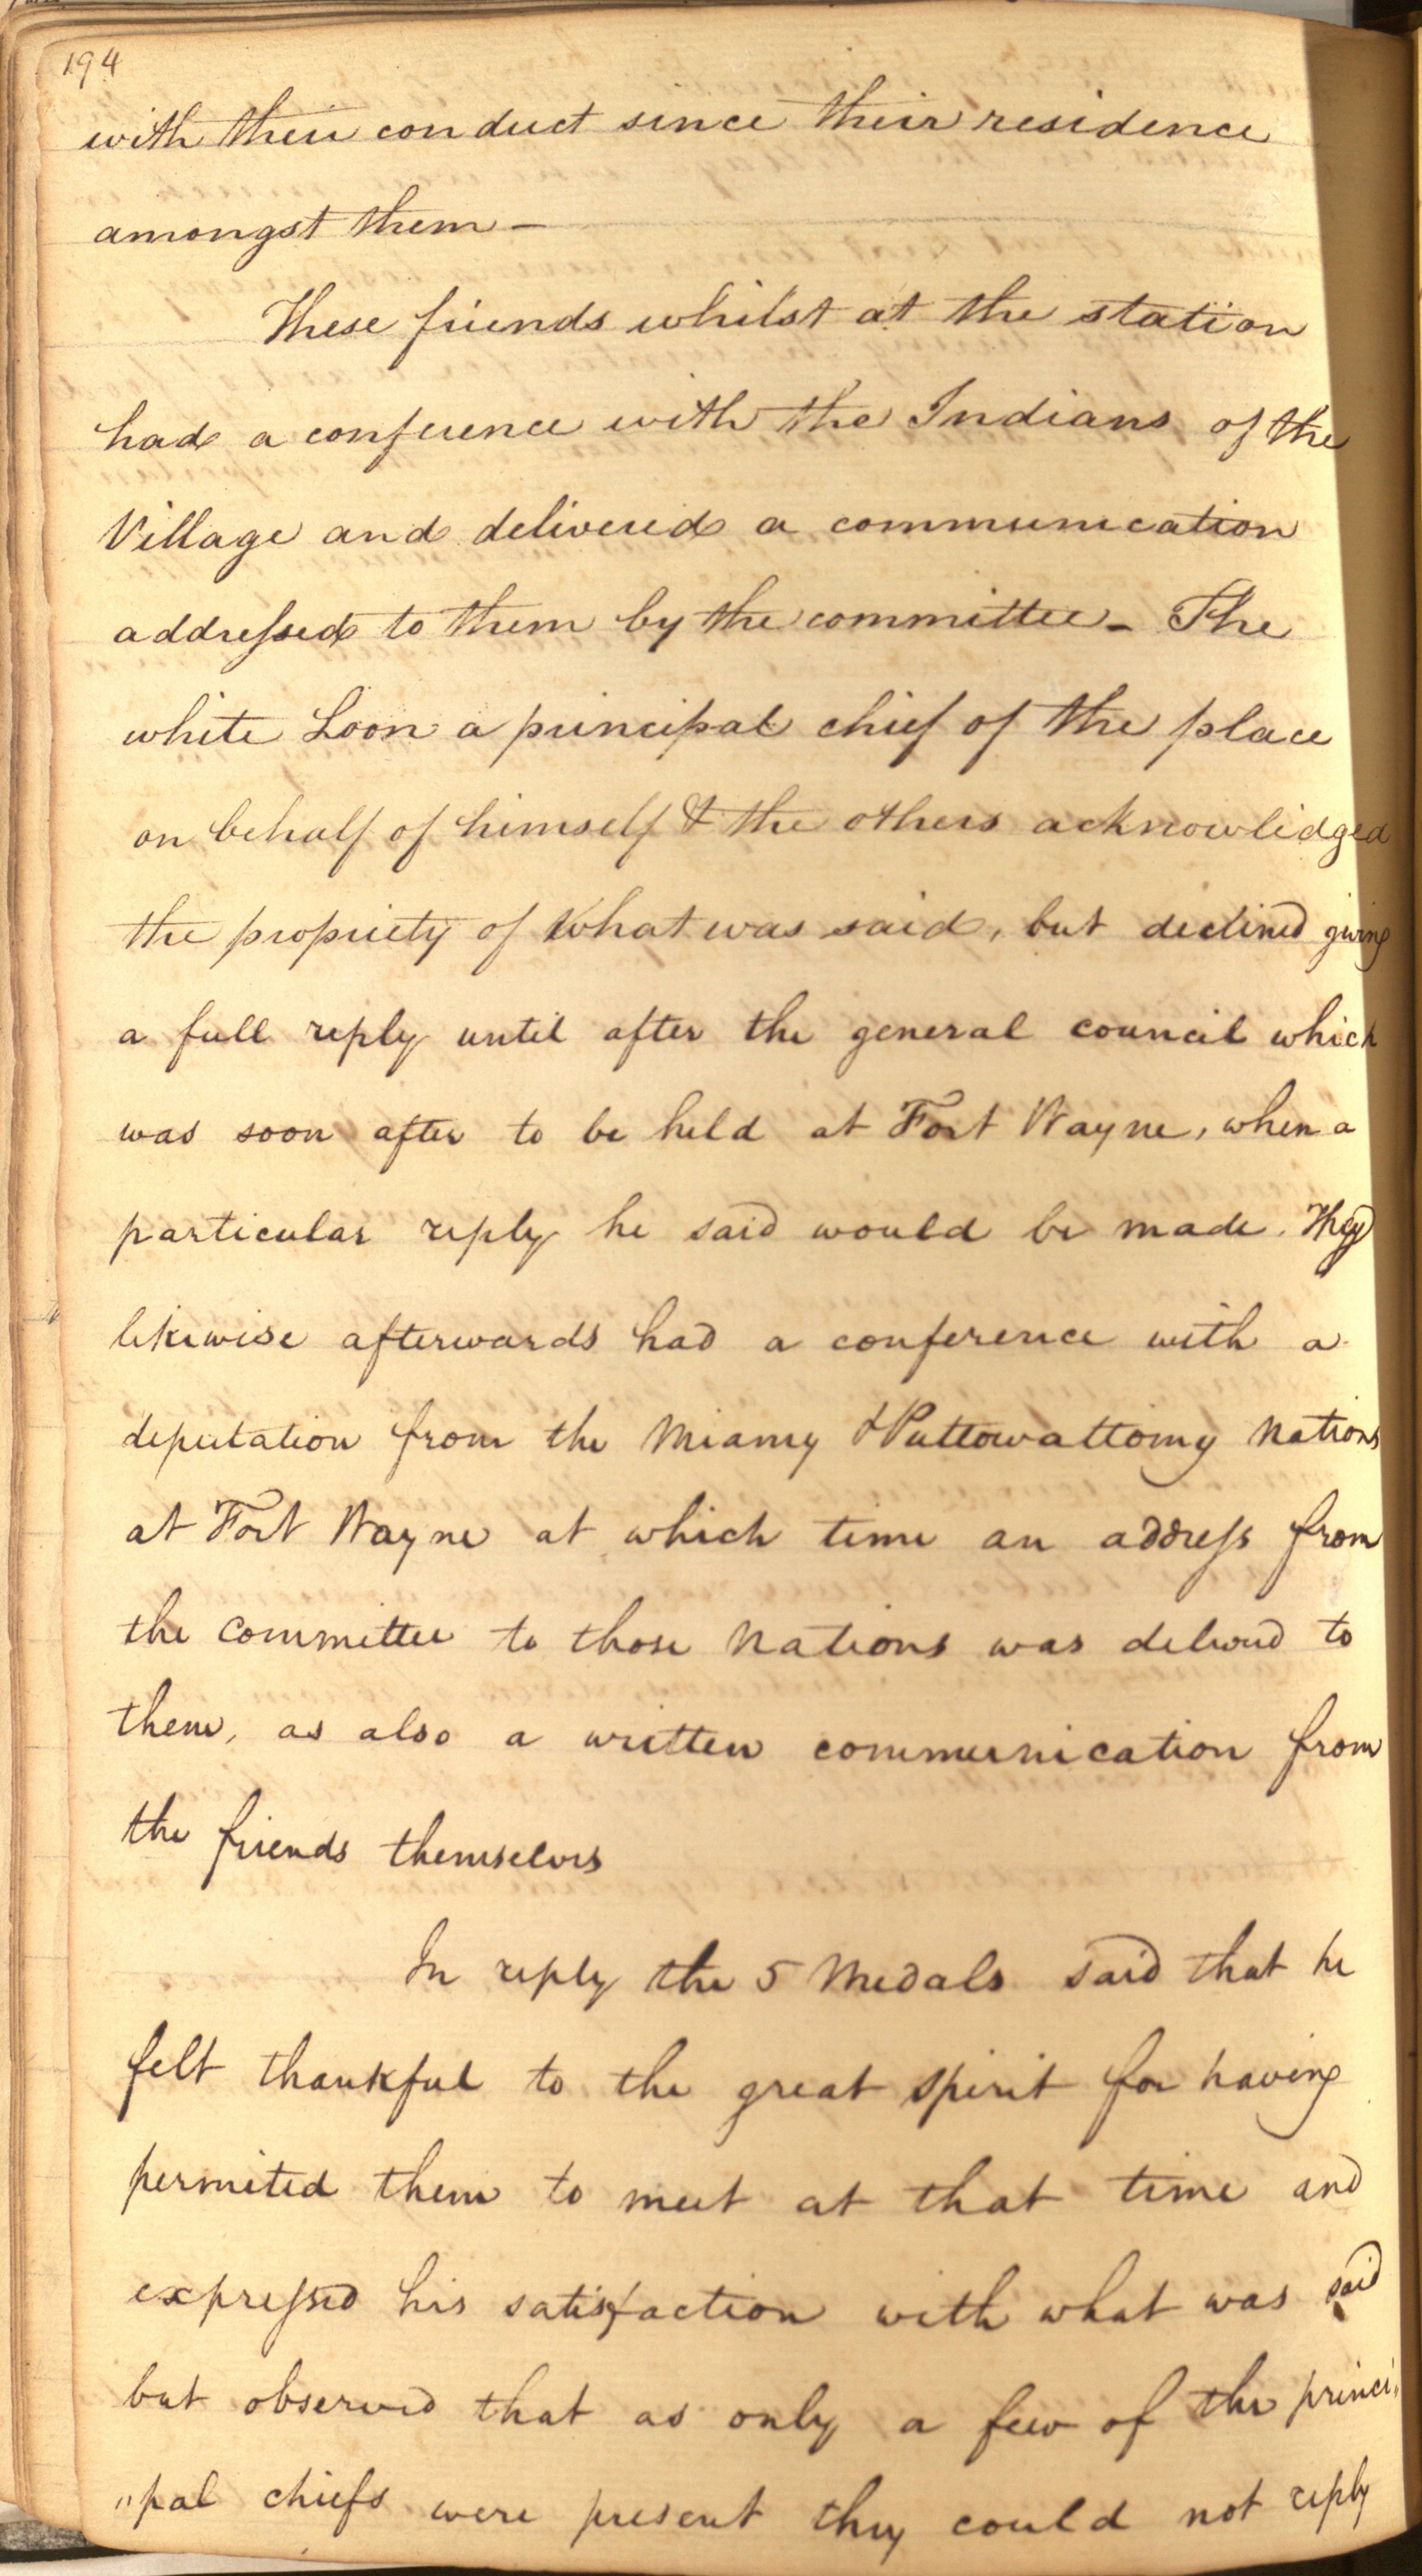 194
with their conduct since their residence
amongst them –
These friends whilst at the station
had a conference with the Indians of the
Village and delivered a communication
addressed to them by the committee – The
white Loon a principal chief of the place
on behalf of himself & the others acknowlidged
the propriety of what was said, but declined giving
a full reply until after the general council which
was soon after to be held at Fort Wayne, when a
particular reply he said would be made. They
likewise afterwards had a conference with a
deputation from the Miamy & Puttowattomy Nations
at Fort Wayne at which time an address from
the Committee to those Nations was deliverd to
them, as also a written communication from
the friends themselves
In reply the 5 Medals said that he
felt thankful to the great spirit for having
permited them to meet at that time and
expressed his satisfaction with what was said
but observed that as only a few of the princi„
„pal chiefs were present they could not reply